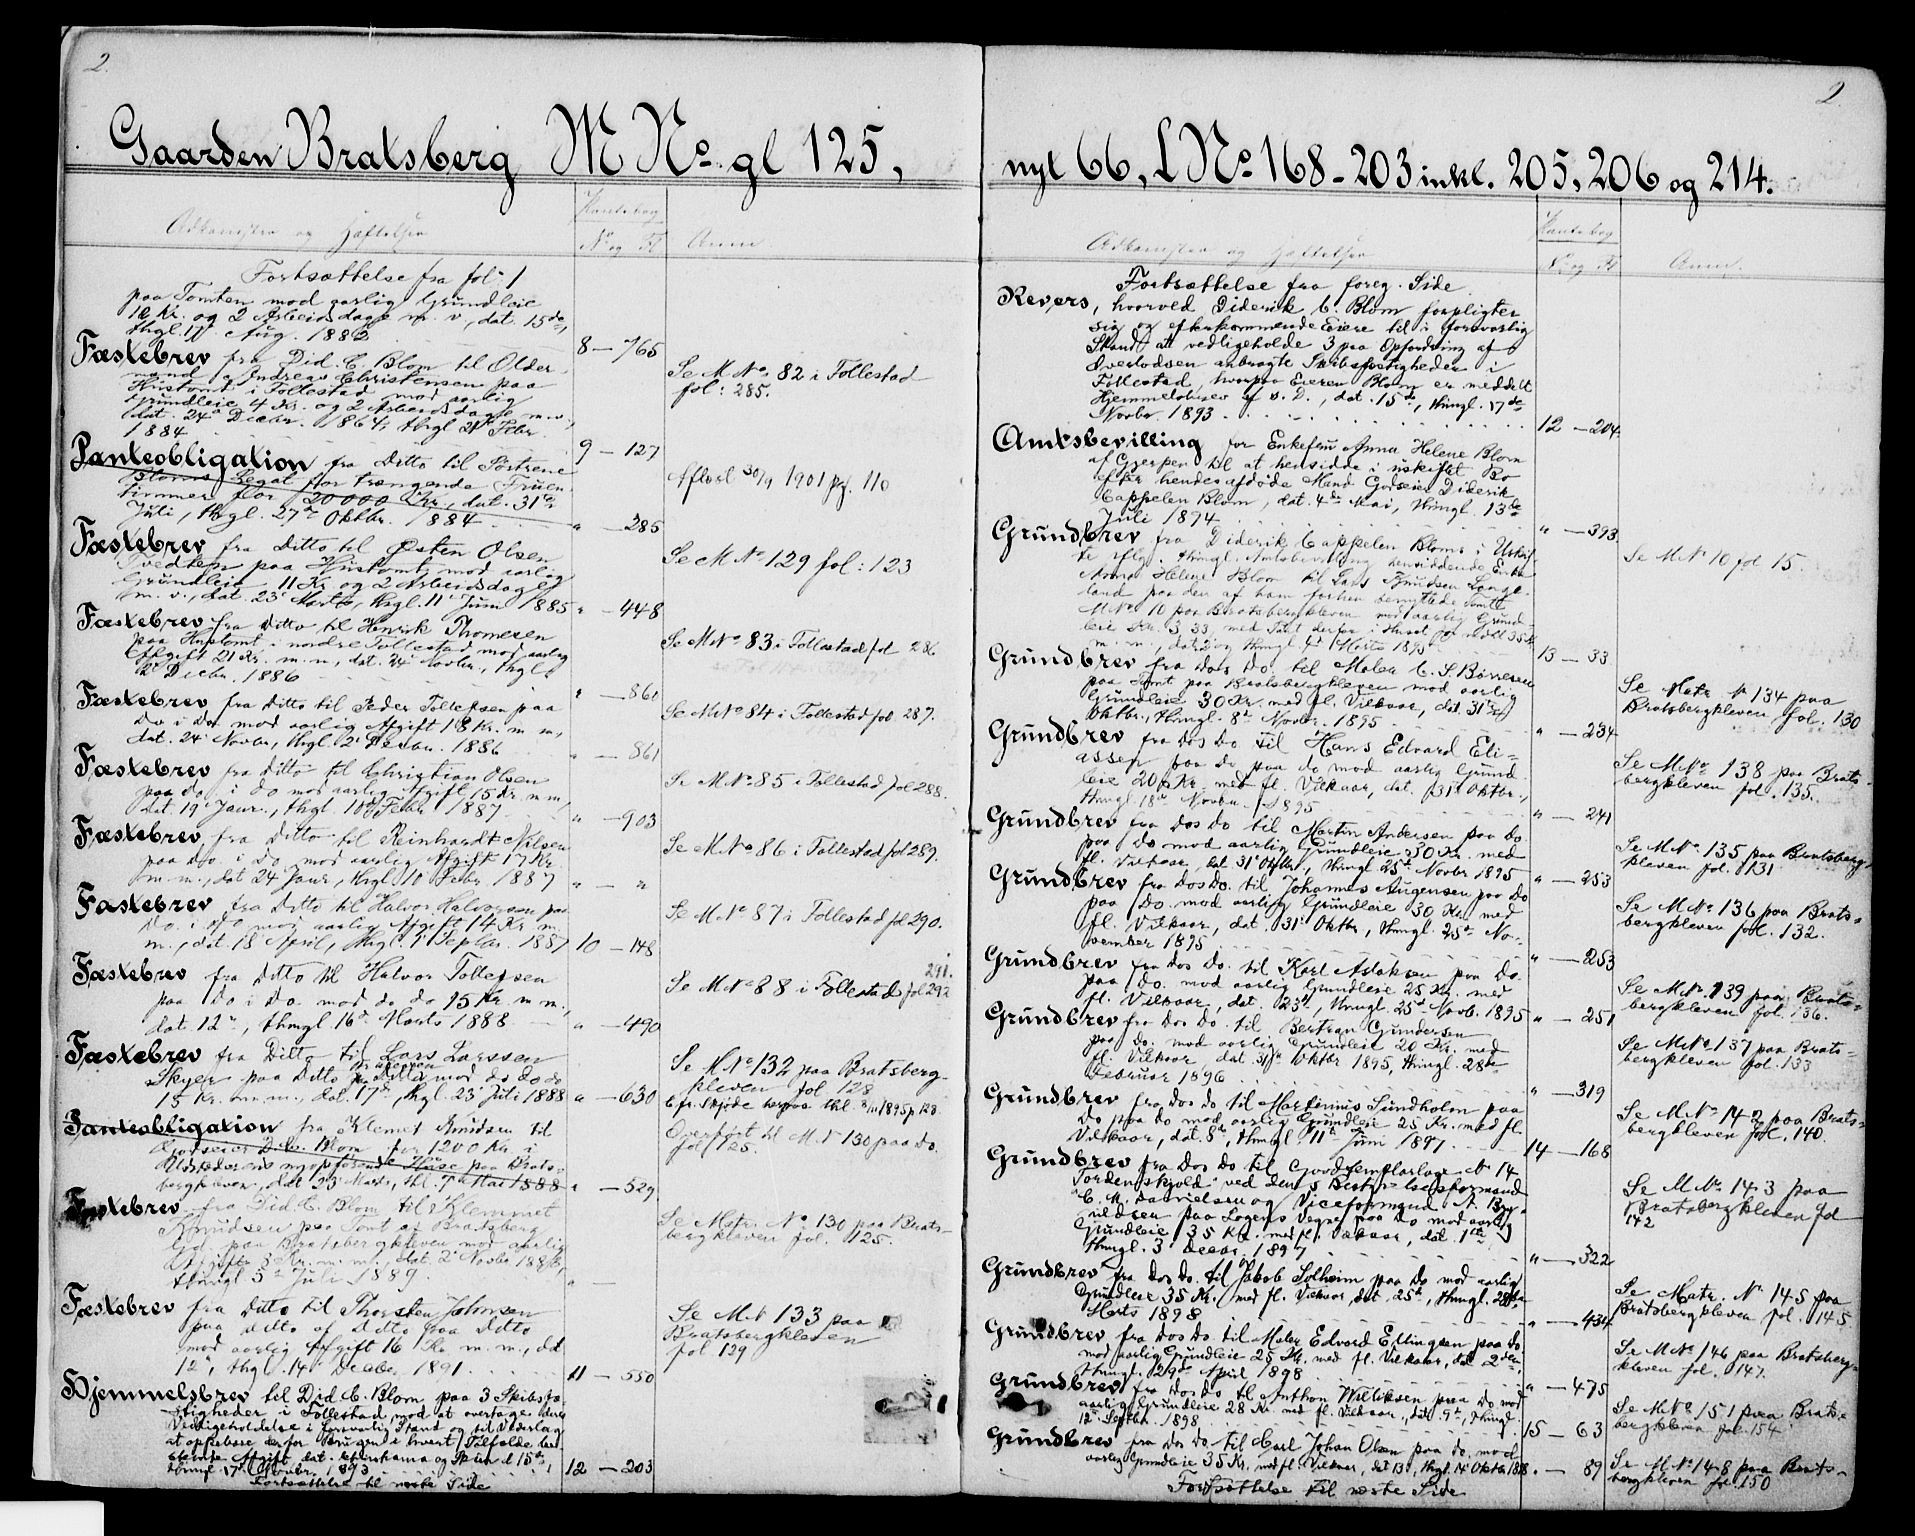 2.
Gaarden Bratsberg M No. gl 125,
Adkomster og Hæftelser
Pantebog
No og Fol
Anm.
Fortsættelse fra fol 1
paa Tomten mod aarlig Grundleie
10 Kr. og 2 Arbeidsdage m. v., dat. 15de,
thgl. 17 Aug. 1882
8 — 765
Fæstebrev fra Did. C. Blom til Older-
mand Andreas Christensen paa
Hustomt i Follestad mod aarlig
Grundleie 4 Kr. og 2 Arbeidsdage m. v.,
dat. 24de Decbr. 1864, thgl 21 Febr.
1884
9 — 127
Se M No. 82 i Follestad
fol: 285.
Panteobligation fra Ditto til Söstrene
Bloms Legat for trængende Fruen-
timmer for 20000 Kr., dat. 31te
Juli, thgl. 27de Oktbr. 1884
" — 285
Aflæst 30/9 1901 pg. 110
Fæstebrev fra Ditto til Østen Olsen
Svedken paa Hustomt mod aarlig
Grundleie 11 Kr og 2 Arbeidsdage
m. v., dat. 23' Marts, thgl. 11' Juni 1885
" — 448
Se M No 129 fol: 123
Fæstebrev fra Ditto til Henrik Thomesen
paa Hustomt i nordre Follestad mod aarlig
Afgift 21 Kr. m. m., dat. 24' Novbr., thgl.
2' Decbr. 1886
" — 861
Se M No 83 i Follestad fol 286
Fæstebrev fra Ditto til Peder Tollefsen paa
Do i Do mod aarlig Afgift 18 Kr. m m,
dat. 24' Novbr., thgl 2' Decbr. 1886
" — 861
Se M No 84 i Follestad fol 287.
Fæstebrev fra Ditto til Christian Olsen
paa do. i do mod aarlig Afgift 15 Kr. m m,
dat 19' Janr., thgl 10de Febr. 1887
" — 903
Se M No 85 i Follestad fol 288.
Fæstebrev fra Ditto til Reinhardt Nilsen
paa do. i do mod aarlig Afgift 17 Kr.
m. m., dat 24 Janr., thgl. 10 Febr 1887
" — "
Se M No 86 i Follestad fol 289.
Fæstebrev fra Ditto til Halvor Halvorsen paa
do. i do mod aarlig Afgift 14 Kr m.
m., dat. 18 April, thgl. 1' Septbr. 1887
10 — 148
Se M No 87 i Follestad fol 290.
Fæstebrev fra Ditto til Halvor Tollefsen
paa Do i Do mod do do 15 Kr. m m.,
dat. 12te, thingl 16de Marts 1888
" — 490
291.
Se M No 88 i Follestad fol 292
Fæstebrev fra Ditto til Lars Larssen
Skyer paa Ditto Ditto mod do do do
15 Kr. m. m., dat. 17de, thgl. 23 Juli 1888
" — 630
Se M No 132 paa Bratsberg-
kleven fol 128
Panteobligation fra Klemet Knudsen til
Godseier D. C. Blom for 1200 Kr i
Udstederens nyopførende Huse paa Brats-
bergkleven, dat 23' Marts, thl. 7de Mai 1888
" — 529.
Overført til M. No 130 paa do.
fol 125.
Fæstebrev fra Did. C. Blom til Klemmet
Knudsen paa Tomt af Bratsberg
paa Bratsbergkleven mod aarlig
Afgift 3 Kr. m. m., dat. 2' Novbr 1886,
thingl 5te Juli 1889.
" —
Se Matr. No 130 paa Brats-
bergkleven fol. 125.
Fæstebrev fra Ditto til Thorsten Johnsen
paa ditto af Ditto paa Ditto
mod aarlig Afgift 16 Kr. m. m., dat
12te, thgl. 14' Decbr 1891.
11 — 550
Se M. No 133 paa
Bratsbergkleven
fol 129
Hjemmelsbrev til Did. C. Blom paa 3 Skibsfæ-
stigheder i Follestad mod at overtage deres
Vedligeholdelse i forsvarlig Stand og til Vederlag
at oppebære derfor Brugen i hvert Tilfælde be-
stemte Afgift, dat. Christiania og Skien d 15de,
thingl. 17' Novbr. 1893
12 — 203
Fortsættelse til næste Side
2.
nyt 66, L No 168 - 203 inkl. 205, 206 og 214.
Adkomster og Hæftelser
Pantebog
No og Fol
Anm.
Fortsættelse fra foreg. Side
Revers, hvorved Diderik C. Blom forpligter
sig og efterkommende Eiere til i forsvarlig
Stand at vedligeholde 3 paa Opfordring af
Overlodsen anbragte Skibsfæstigheder i
Follestad, hvorpaa Eieren Blom er meddelt
Hjemmelsbrev af s. D., dat. 15de, thingl. 17de
Novbr. 1893
12 — 204.
Amtsbevilling for Enkefru Anna Helene Blom
af Gjerpen til at hensidde i uskiftet Bo
efter hendes afdøde Mand Godseier Diderik
Cappelen Blom, dat. 4de Mai, thingl. 13de
Juli 1894
" — 393
Grundbrev fra Diderik Cappelen Bloms i Uskif-
te iflg. thingl. Amtsbevilling hensiddende Enke
Anna Helene Blom til Lars Knudsen Lange-
land paa den af ham forhen benyttede Tomt
M No. 10 paa Bratsbergkleven mod aarlig Grund-
leie Kr. 3,33 med Pant derfor i Huset
m. m., dat og thingl 4de Marts 1895
13 — 33
Se M No 10 fol 15.
Grundbrev fra Dos Do. til Maler C. S. Børresen
paa Tomt paa Bratsbergkleven mod aarlig
Grundleie 30 Kr. med fl. Vilkaar, dat. 31te
Oktbr., thingl. 8de Novbr. 1895
" — 234
Se Matr. No 134 paa
Bratsbergkleven fol. 130
Grundbrev fra Dos Do til Hans Edvard Eli-
assen paa do paa do mod aarlig Grund-
leie 20 Kr. med fl. Vilkaar, dat. 31te Oktbr.,
thingl. 18de Novbr. 1895
" — 241
Se M No 138 paa Brats-
bergkleven fol. 135.
Grundbrev fra Dos Do til Martin Andersen paa Do
paa Do mod aarlig Grundleie 30 Kr. med
fl. Vilkaar, dat. 31' Oktbr., thingl 25de Novbr 1895
" — 253
Se M No 135 paa Bratsberg-
kleven fol. 131
Grundbrev fra Dos Do. til Johannes Augensen paa Do
paa Do. mod aarlig Grundleie 30 Kr. med
fl. Vilkaar, dat. 31' Oktbr, thingl. 25de No-
vember 1895
" — 253
Se M No. 136 paa Brats-
bergkleven fol. 132.
Grundbrev fra Dos Do. til Karl Aslaksen paa Do.
paa Do. mod aarlig Grundleie 25 Kr. med
fl. Vilkaar, dat. 23de, thingl. 25de Novb. 1895
" — 251
Se M No. 139 paa Brats-
bergkleven fol. 136.
Grundbrev fra Dos Do. til Bertran Gundersen
paa Do. mod aarlig Grundleie 20 Kr. med
fl. Vilkaar, dat 31te Oktbr 1895, thingl. 28de
Februar 1896
" — 319
Se M No. 137 paa Brats-
bergkleven fol. 133
Grundbrev fra Dos Do til Martinius Sundholm paa
Do paa do mod aarlig Grundleie 25 Kr. med fl.
Vilkaar, dat. 5te, thingl 11te Juni 1897
14 — 168
Se M No 142 paa Brats-
bergkleven fol. 140.
Grundbrev fra Dos Do til Godtemplarloge No 14
"Tordenskjold" ved dens Bestyrelsesformand
C. M. Danielsen og Viceformand A. Bry-
nildsen paa Logens Vegne paa Do mod aarlig
Grundleie 35 Kr. med fl. Vilkaar, dat. 1ste,
thingl. 3 Decbr. 1897
" — 322
Se M No 143 paa
Bratsbergkleven fol
142
Grundbrev fra Dos Do. til Jakob Solheim paa Do mod aarlig
Grundleie 35 Kr. med fl. Vilkaar, dat 25de, thingl. 28de
Marts 1898
" — 434
Se Matr. No 145 paa
Bratsbergkleven fol. 145
Grundbrev fra Dos Do til Maler Edvard Ellingsen paa Do
mod aarlig Grundleie 25 Kr. med fl. Vilkaar, dat 2den
thingl. 29de April 1898
" — 475
Se M No 146 paa Bratsberg-
kleven fol. 147.
Grundbrev fra Dos Do til Anthon Williksen paa Do mod
aarlig Grundleie 28 Kr med fl. Vilkaar, dat. 9de, thingl.
12te Septbr. 1898
15 — 63
Se M No 151 paa Brats-
bergkleven fol. 154
Grundbrev fra Dos Do til Carl Johan Olsen paa do. mod
aarlig Grundleie 35 Kr. med fl. Vilkaar, dat 13', thgl. 14' Oktbr 1898
" — 89
Se M No 148 paa Brats-
bergkleven fol. 150
Fortsættelse til næste Side